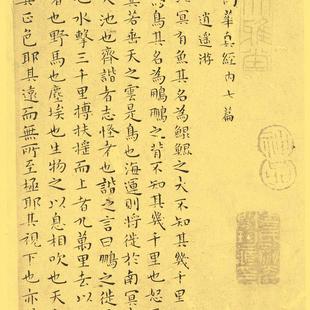 華真經內七篇
逍遥游
冥有魚其名為鯤鯤之大不知其幾千里
鳥其名為鵬鵬之背不知其幾千里也怒
翼若垂天之雲是鳥也海運則將徙於南冥
天池也齊諧者志怪者也諧之言曰鵬之徙
也水擊三千里摶扶搖而上者九萬里去以
者也野馬也塵埃也生物之以息相吹也天
其正色耶其遠而無所至極耶其視下也亦